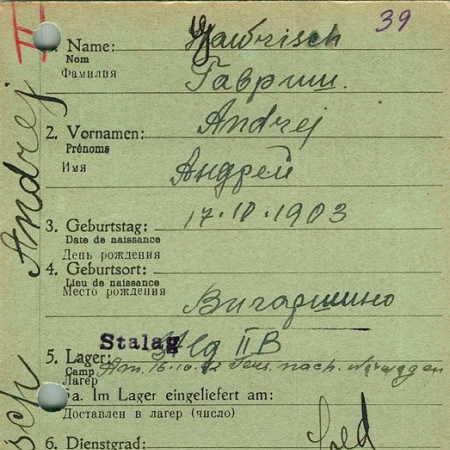 III
39
1. Name: Hawrisch
Nom
Фамилия
Гавриш.
2. Vornamen: Andrej
Prénoms
Имя
Андрей
3. Geburtstag: 17.10.1903
Date de naissance
День рождения
4. Geburtsort:
Lieu de naissance
Место рождения
Вигаришино
Stalag IIB
5. Lager:
Camp
Лагерь
Am 16.10. nach Norwegen
5a. Im Lager eingeliefert am:
Доставлен в лагерь (число)
6. Dienstgrad: Sold
Andrej
sch